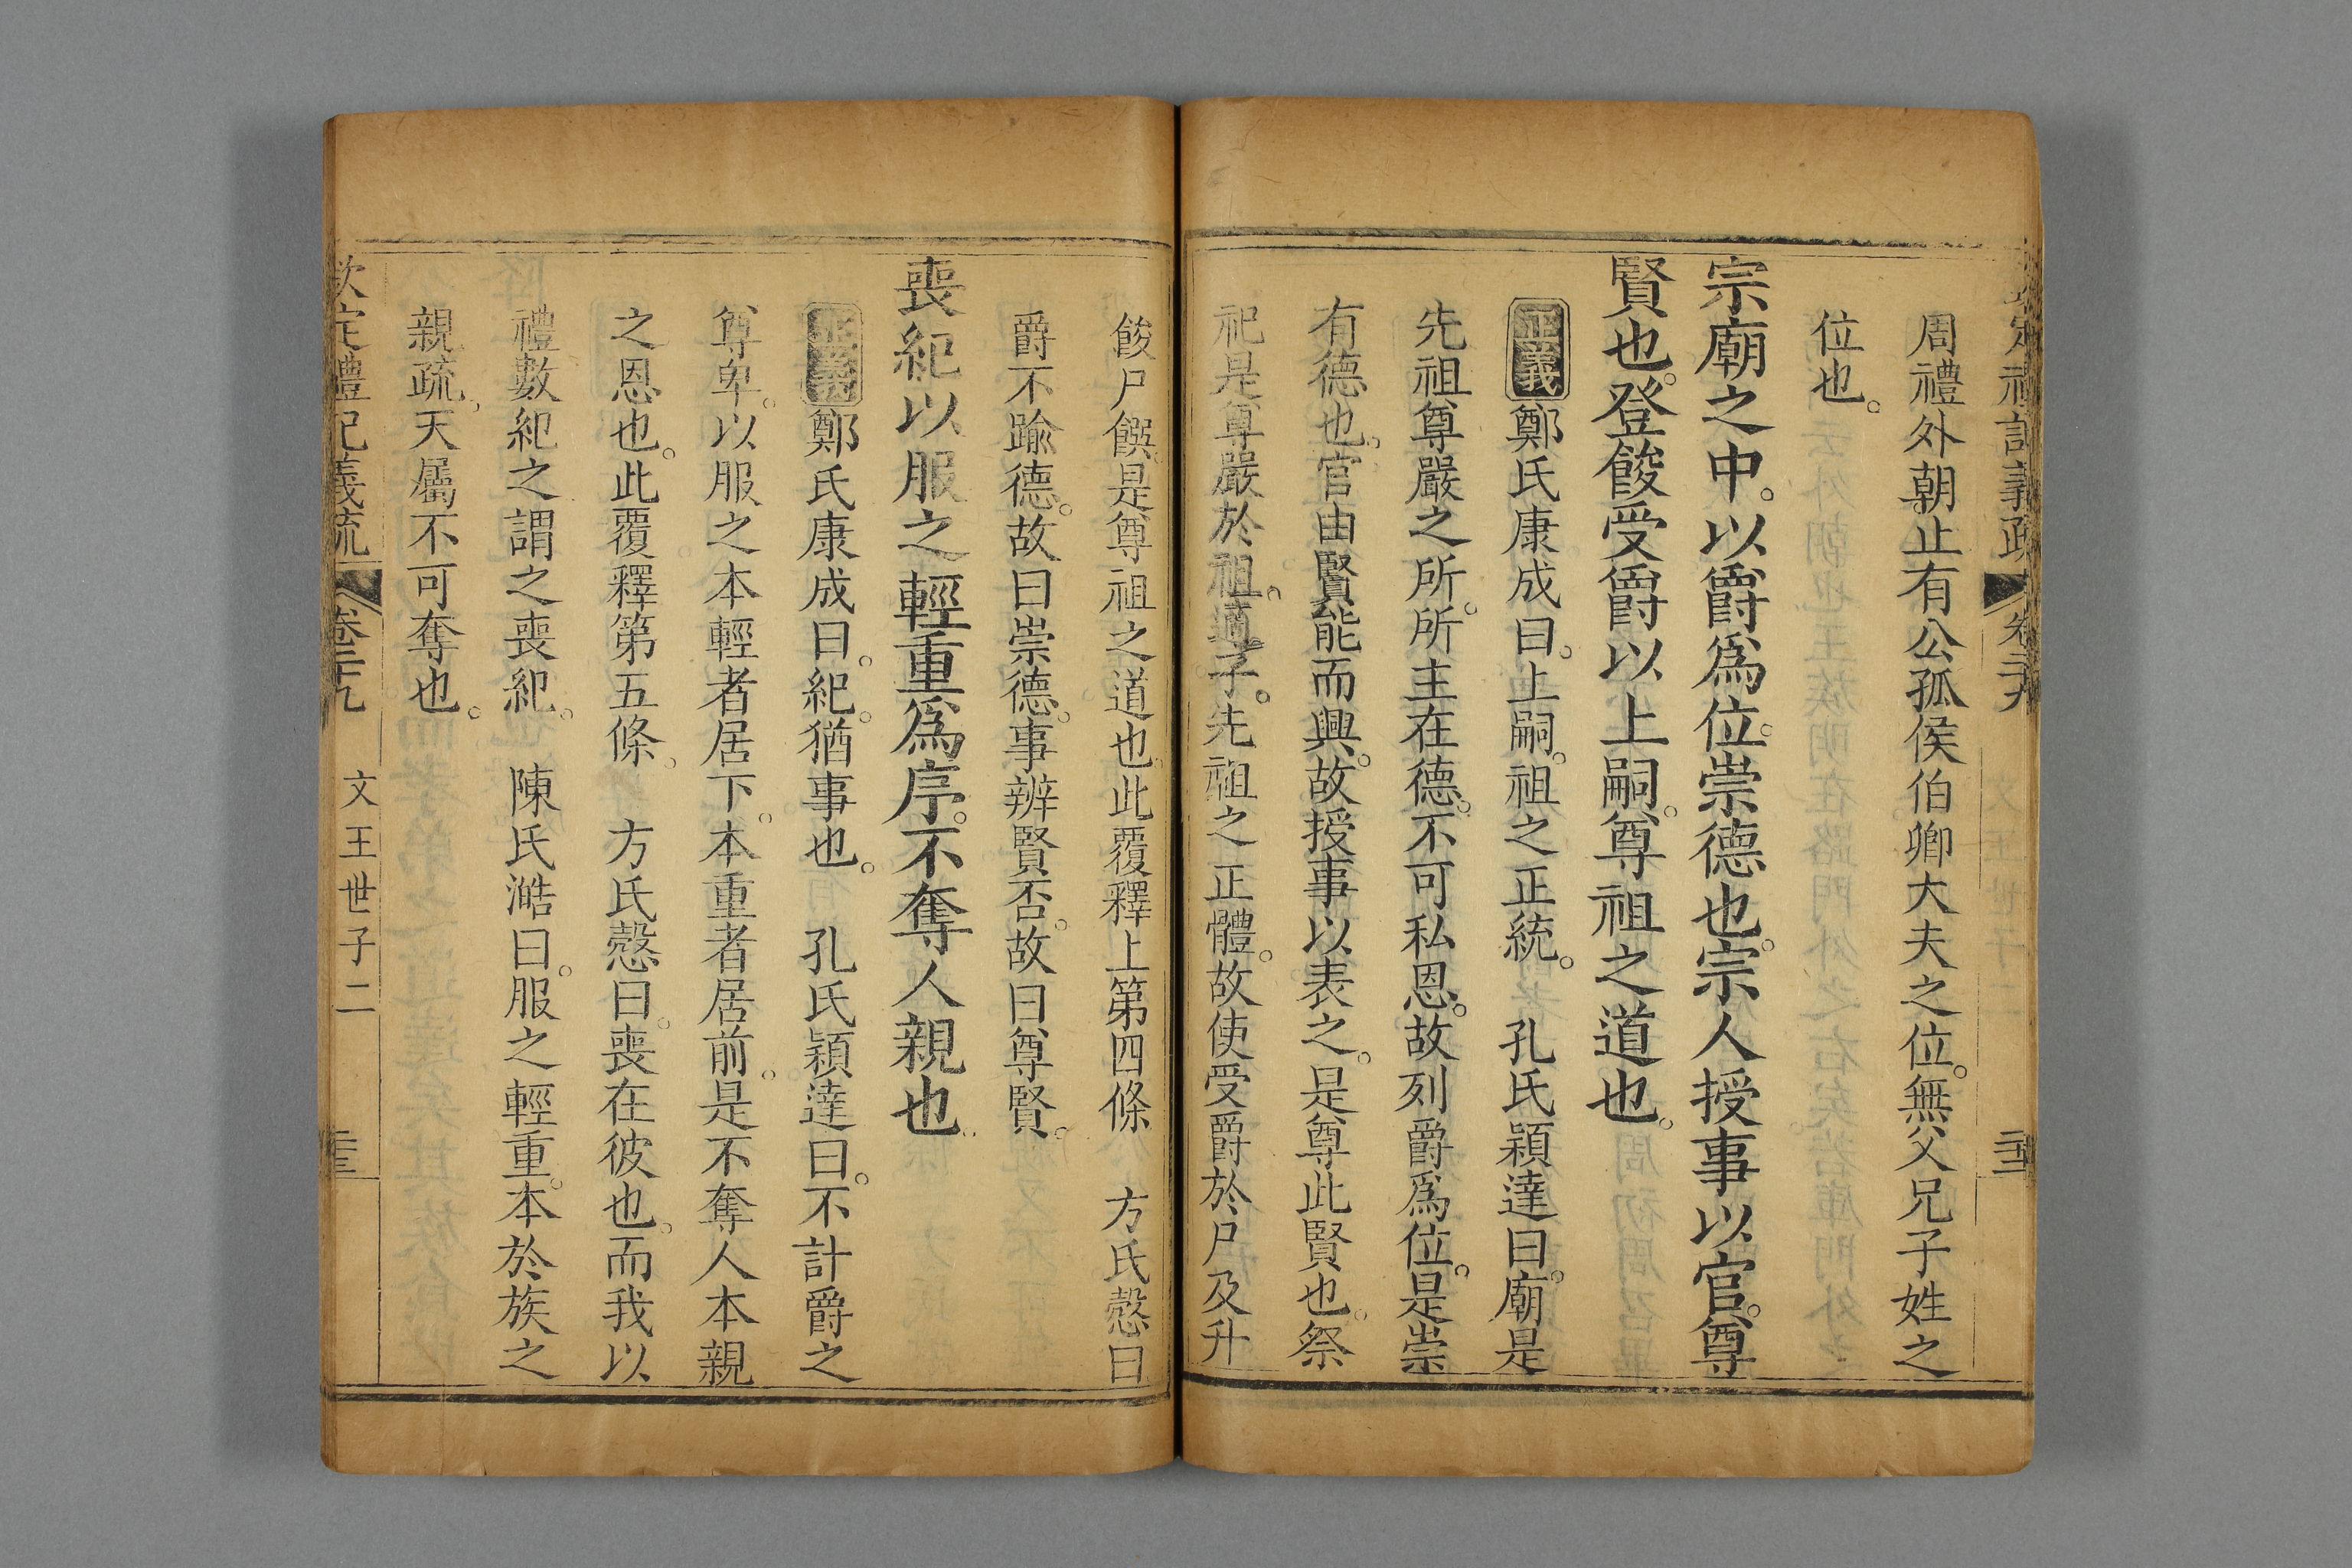 欽定禮記義疏 卷二十九
周禮外朝止有公孤侯伯卿大夫之位。無父兄子姓之
位也。
宗廟之中。以爵爲位。崇德也。宗人授事以官。尊
賢也。登餕受爵以上嗣。尊祖之道也。
正義 鄭氏康成曰。上嗣。祖之正統。 孔氏穎達曰。廟是
先祖尊嚴之所。所主在德。不可私恩。故列爵爲位。是崇
有德也。官由賢能而興。故授事以表之。是尊此賢也。祭
祀是尊嚴於祖。適子。先祖之正體。故使受爵於尸及升
餕尸饌。是尊祖之道也。此覆釋上第四條 方氏慤曰
爵不踰德。故曰崇德。事辨賢否。故曰尊賢。
喪紀以服之輕重爲序。不奪人親也。
正義 鄭氏康成曰。紀。猶事也。 孔氏穎達曰。不計爵之
尊卑。以服之本輕者居下。本重者居前。是不奪人本親
之恩也。此覆釋第五條。 方氏慤曰。喪在彼也。而我以
禮數紀之謂之喪紀。 陳氏澔曰。服之輕重。本於族之
親疏。天屬不可奪也。
欽定禮記義疏 卷二十九 文王世子二